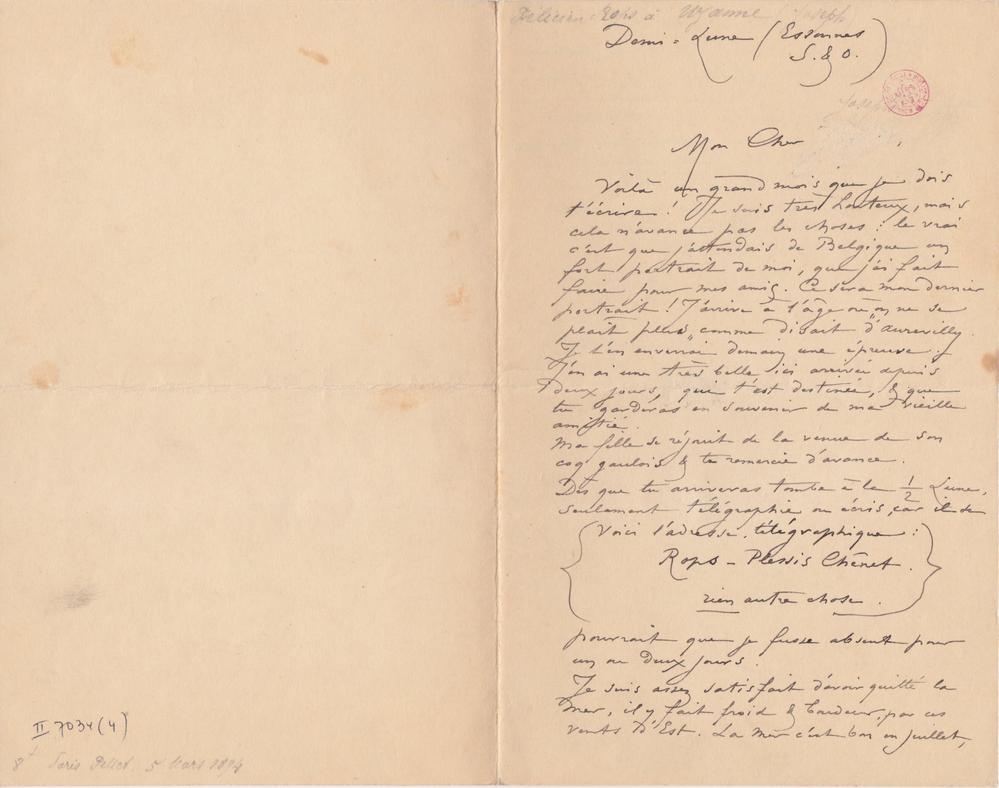 II 7034 (4)
8t Paris 5 Mars 1894
Félicien Rops à (Joseph)
Demi-Lune (Essonnes
S. & O.)
Mon Cher
Voilà un grand mois que je dois
t'écrire ! Je suis très honteux, mais
cela n'avance pas les choses : le vrai
c'est que j'attendais de Belgique un
fort portrait de moi, que j'ai fait
faire pour mes amis. Ce sera mon dernier
portrait ! J'arrive à l'âge où „on ne se
plait plus" comme disait d'Aurevilly.
Je t'en enverrai demain une épreuve.
J'en ai une très belle ici arrivée depuis
deux jours, qui t'est destinée, & que
tu garderas en souvenir de ma vieille
amitié.
Ma fille se réjouit de la venue de son
coq gaulois & te remercie d'avance.
Dès que tu arriveras tombe à la ½ Lune,
seulement télégraphie ou écris, car il se
Voici l'adresse télégraphique :
Rops – Plessis Chênet.
rien autre chose.
pourrait que je fusse absent pour
un ou deux jours.
Je suis assez satisfait d'avoir quitté la
mer, il y fait froid & par ces
vents d'Est. La mer c'est bon en juillet,